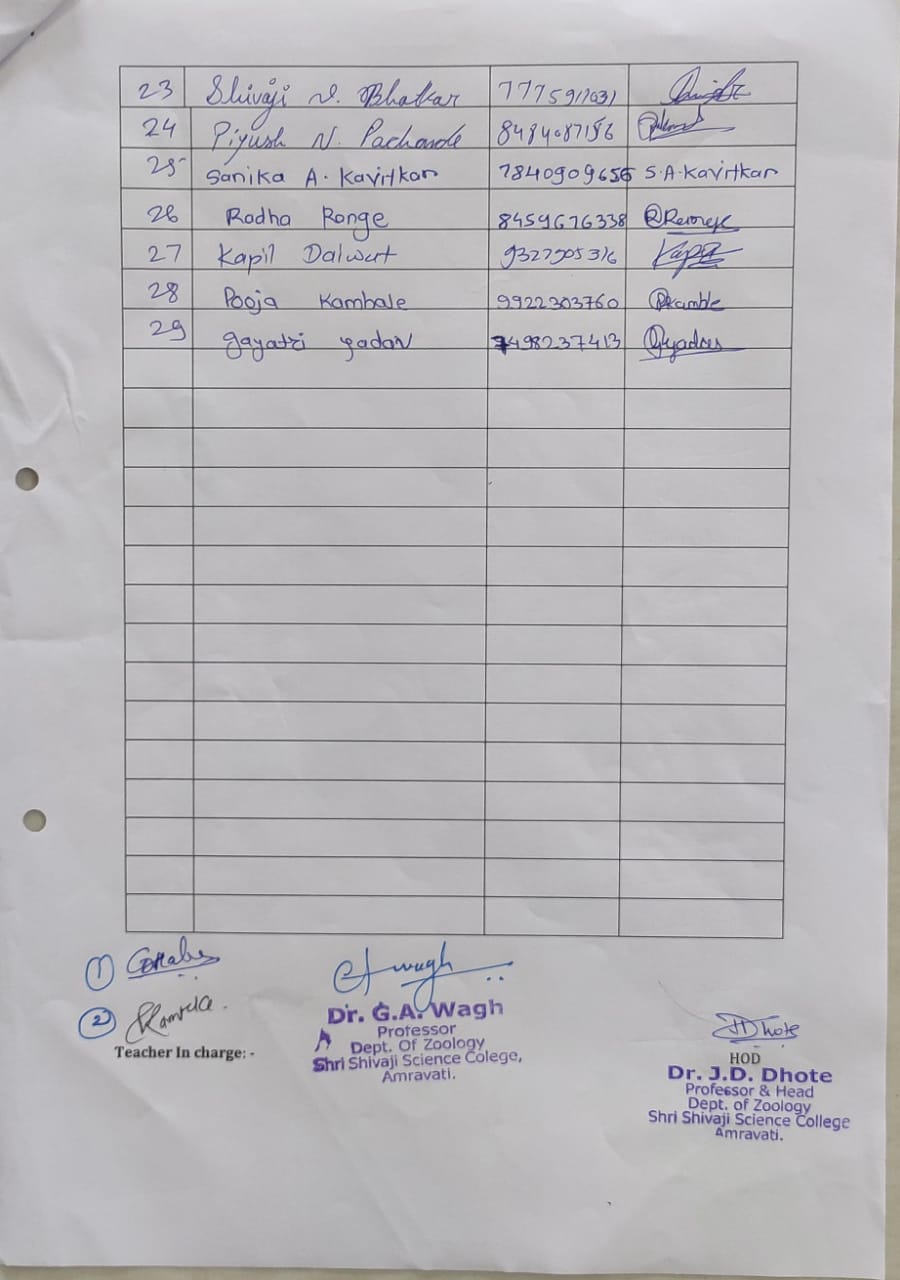 23 Shivaji N. Bhatkar
24 Piyush N. Pachande 8484087186
25 Sanika A. Kavitkar 7840909656 S.A.Kavitkar
26 Radha Ronge 8459676338
27 Kapil Dalwut 9327905316 Kapil
28 Pooja Kambale 9922303760 Pkamble
29 gayatri yadav 7498237413 Gyadav
1
2
wagh
Dr. G.A. Wagh
Professor
Dept. Of Zoology
Shri Shivaji Science College,
Amravati.
Teacher In charge: -
JDDhote
HOD
Dr. J.D. Dhote
Professor & Head
Dept. of Zoology
Shri Shivaji Science College
Amravati.